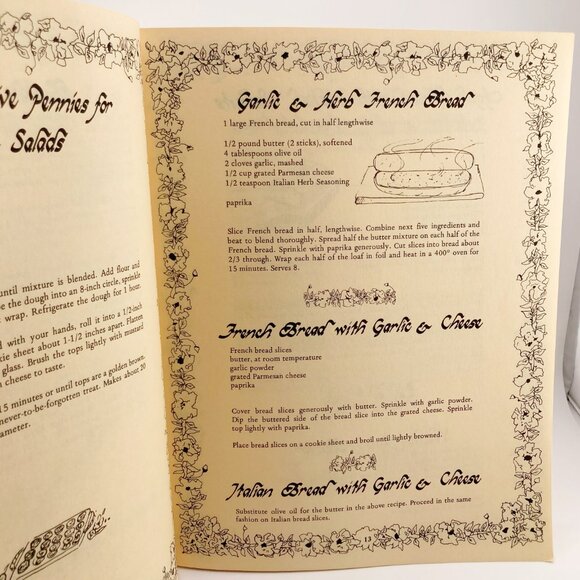 ve Pennies for
Salads
until mixture is blended. Add flour and
e the dough into an 8-inch circle, sprinkle
wrap. Refrigerate the dough for 1 hour.
d with your hands, roll it into a 1/2-inch
kie sheet about 1-1/2 inches apart. Flatten
glass. Brush the tops lightly with mustard
cheese to taste.
15 minutes or until tops are a golden brown.
never-to-be-forgotten treat. Makes about 20
ameter.
Garlic & Herb French Bread
1 large French bread, cut in half lengthwise
1/2 pound butter (2 sticks), softened
4 tablespoons olive oil
2 cloves garlic, mashed
1/2 cup grated Parmesan cheese
1/2 teaspoon Italian Herb Seasoning
paprika
Slice French bread in half, lengthwise. Combine next five ingredients and
beat to blend thoroughly. Spread half the butter mixture on each half of the
French bread. Sprinkle with paprika generously. Cut slices into bread about
2/3 through. Wrap each half of the loaf in foil and heat in a 400° oven for
15 minutes. Serves 8.
French Bread with Garlic & Cheese
French bread slices
butter, at room temperature
garlic powder
grated Parmesan cheese
paprika
Cover bread slices generously with butter. Sprinkle with garlic powder.
Dip the buttered side of the bread slice into the grated cheese. Sprinkle
top lightly with paprika.
Place bread slices on a cookie sheet and broil until lightly browned.
Italian Bread with Garlic & Cheese
Substitute olive oil for the butter in the above recipe. Proceed in the same
fashion on Italian bread slices.
13